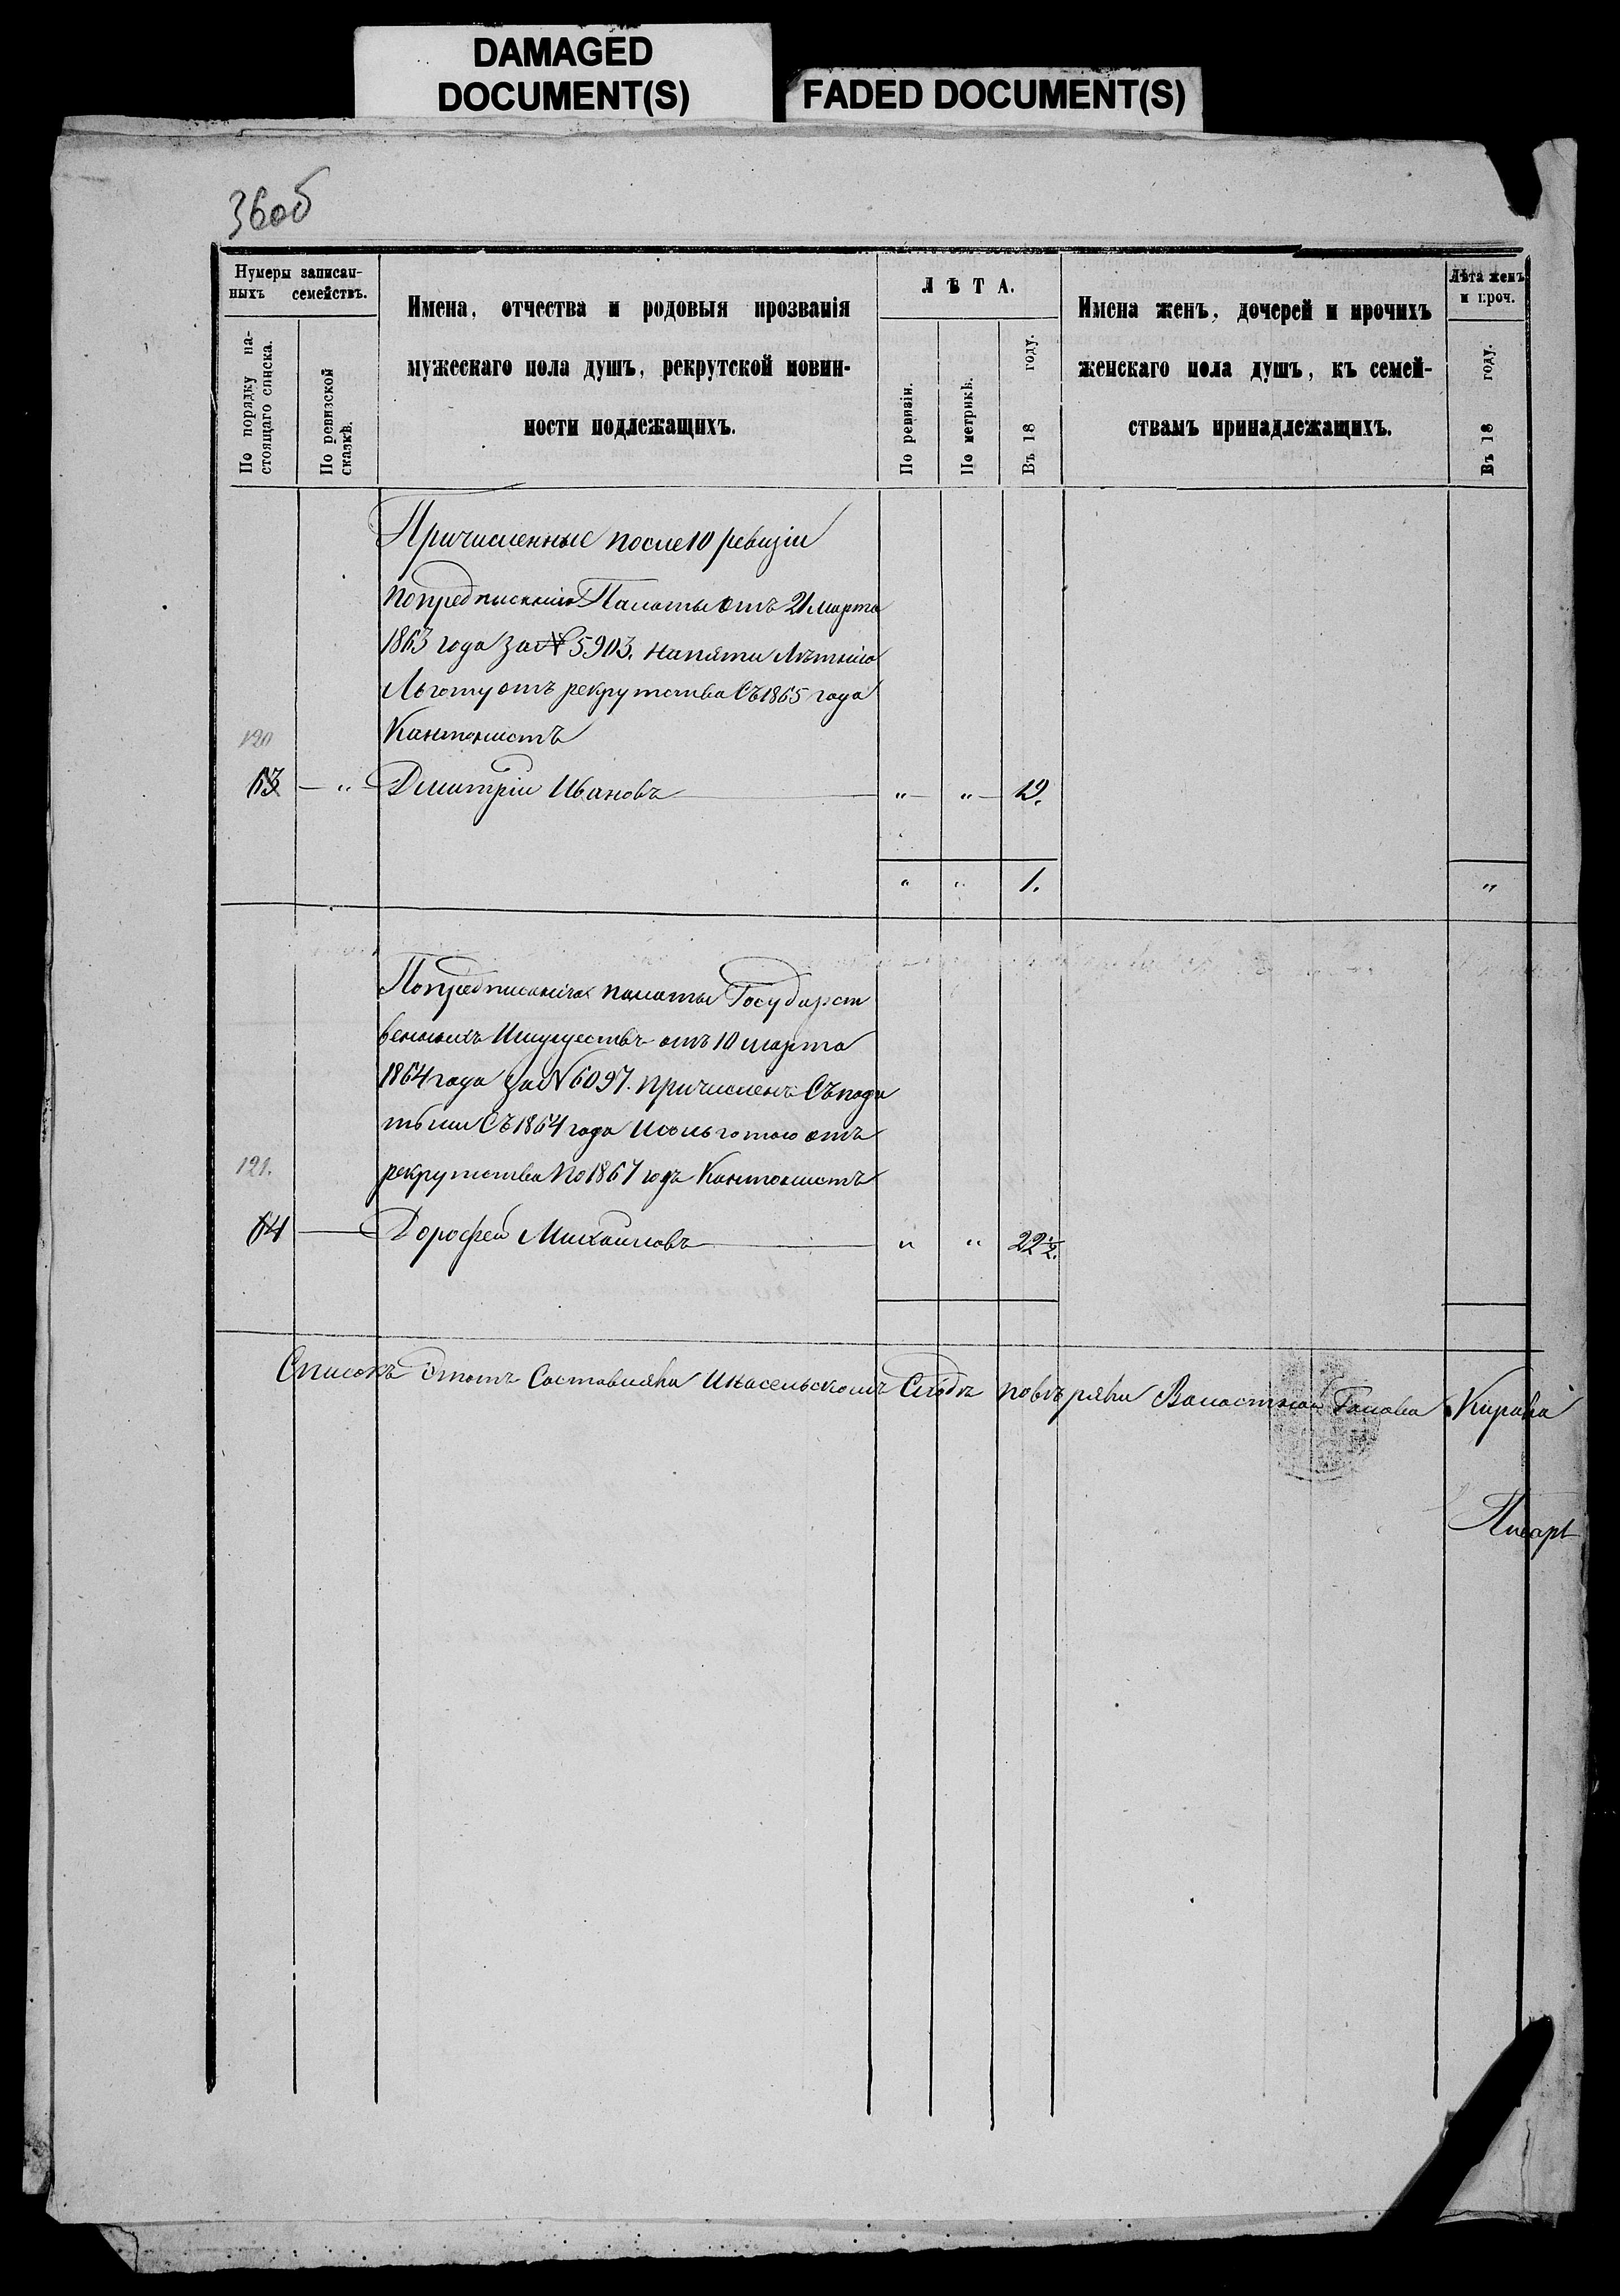 DAMAGED
DOCUMENT(S)
FADED DOCUMENT(S)
36об
Нумеры записан-
ныхъ семействъ.
По порядку на-
стоящаго списка.
По ревизской
сказкѣ.
Имена, отчества и родовыя прозванія
мужескаго пола душъ, рекрутской повин-
ности подлежащихъ.
ЛѢТА.
По ревизіи.
По метрикѣ.
Въ 18 году.
Имена женъ, дочерей и прочихъ
женскаго пола душъ, къ семей-
ствамъ принадлежащихъ.
Лѣта женъ
и проч.
Въ 18 году.
Причисленные после 10 ревизіи
По предписанию Палаты отъ 21 марта
1863 года за № 5903. на пяти лѣтнию
Льготу отъ рекрутства Съ 1865 года
120 Кантонистъ
63 — „ Дмитрій Ивановъ „ „ 19.
„ „ 1. „
По предписанию палаты Государст
венныхъ Имуществъ отъ 10 марта
1864 года за № 6097. причисленъ Съ пода
тьми Съ 1864 года и польготою отъ
121. рекрутства по 1867 годъ Кантонистъ
64 Дорофей Михайловъ „ „ 22 1/2.
Списокъ Этотъ Составляли и на сельскомъ Сходѣ повѣряли Волостной Голова Кирана
Писарь